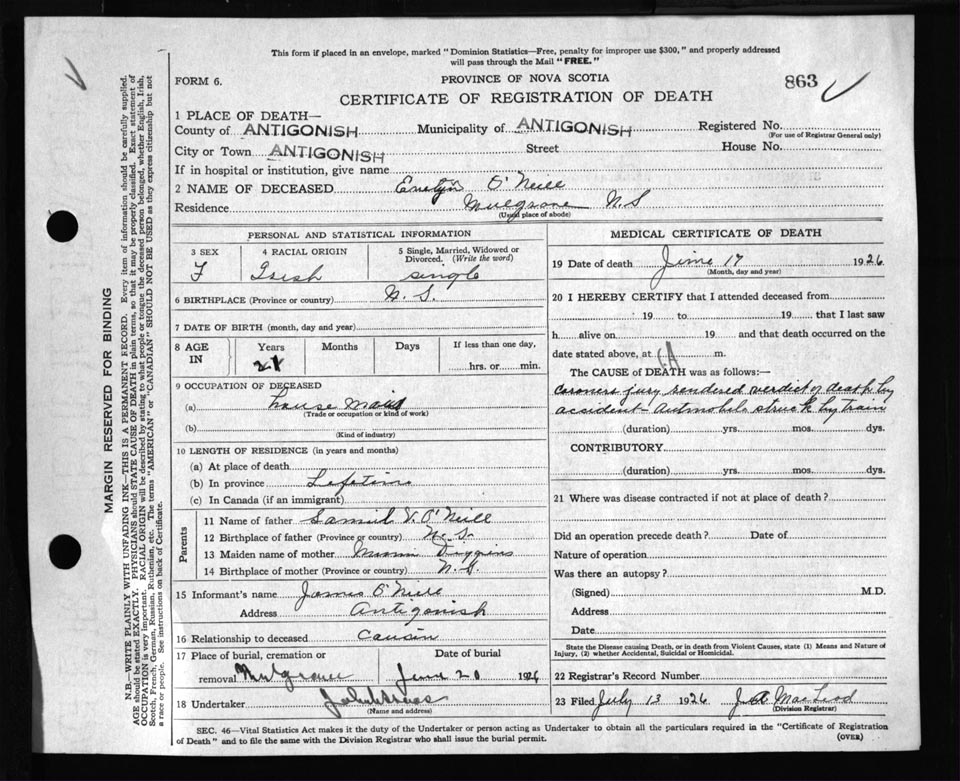 This form if placed in an envelope, marked "Dominion Statistics—Free, penalty for improper use $300," and properly addressed
will pass through the Mail "FREE."
FORM 6.
PROVINCE OF NOVA SCOTIA
863
CERTIFICATE OF REGISTRATION OF DEATH
1 PLACE OF DEATH—
County of ANTIGONISH Municipality of ANTIGONISH Registered No.
(For use of Registrar General only)
City or Town ANTIGONISH Street House No.
If in hospital or institution, give name
2 NAME OF DECEASED Evelyn O'Neill
Residence Mulgrave N.S
(Usual place of abode)
PERSONAL AND STATISTICAL INFORMATION
3 SEX 4 RACIAL ORIGIN 5 Single, Married, Widowed or
Divorced. (Write the word)
F Irish single
6 BIRTHPLACE (Province or country) N.S.
7 DATE OF BIRTH (month, day and year)
8 AGE IN Years Months Days If less than one day,
hrs. or min.
9 OCCUPATION OF DECEASED
(a) house maid
(Trade or occupation or kind of work)
(b)
(Kind of industry)
10 LENGTH OF RESIDENCE (in years and months)
(a) At place of death
(b) In province Lifetime
(c) In Canada (if an immigrant)
Parents
11 Name of father V. O'Neill
12 Birthplace of father (Province or country) N.S.
13 Maiden name of mother Diggins
14 Birthplace of mother (Province or country) N.S.
15 Informant's name James O'Neill
Address Antigonish
16 Relationship to deceased Causin
17 Place of burial, cremation or Date of burial
removal Mulgrave June 20 1926
18 Undertaker
(Name and address)
MEDICAL CERTIFICATE OF DEATH
19 Date of death June 17 1926
(Month, day and year)
20 I HEREBY CERTIFY that I attended deceased from
19 to 19 that I last saw
h alive on 19 and that death occurred on the
date stated above, at m.
The CAUSE of DEATH was as follows:—
coroners jury rendered verdict of death by
accident- Automobile struck by train
(duration) yrs. mos. dys.
CONTRIBUTORY
(duration) yrs. mos. dys.
21 Where was disease contracted if not at place of death?
Did an operation precede death? Date of
Nature of operation
Was there an autopsy?
(Signed) M.D.
Address
Date
State the Disease causing Death, or in death from Violent Causes, state (1) Means and Nature of
Injury, (2) whether Accidental, Suicidal or Homicidal.
22 Registrar's Record Number
23 Filed July 13 1926 J A MacLeod
(Division Registrar)
SEC. 46—Vital Statistics Act makes it the duty of the Undertaker or person acting as Undertaker to obtain all the particulars required in the "Certificate of Registration
of Death" and to file the same with the Division Registrar who shall issue the burial permit.
(OVER)
MARGIN RESERVED FOR BINDING
N.B.—WRITE PLAINLY WITH UNFADING INK—THIS IS A PERMANENT RECORD. Every item of information should be carefully supplied.
AGE should be stated EXACTLY. PHYSICIANS should STATE CAUSE OF DEATH in plain terms, so that it may be properly classified. Exact statement of
OCCUPATION is very important. RACIAL ORIGIN will be described by stating to what people or tongue the deceased person belonged, whether English, Irish,
Scotch, French, German, Russian, Ruthenian, etc. The terms "AMERICAN" or "CANADIAN" SHOULD NOT BE USED as they express citizenship but not
a race or people. See instructions on back of Certificate.